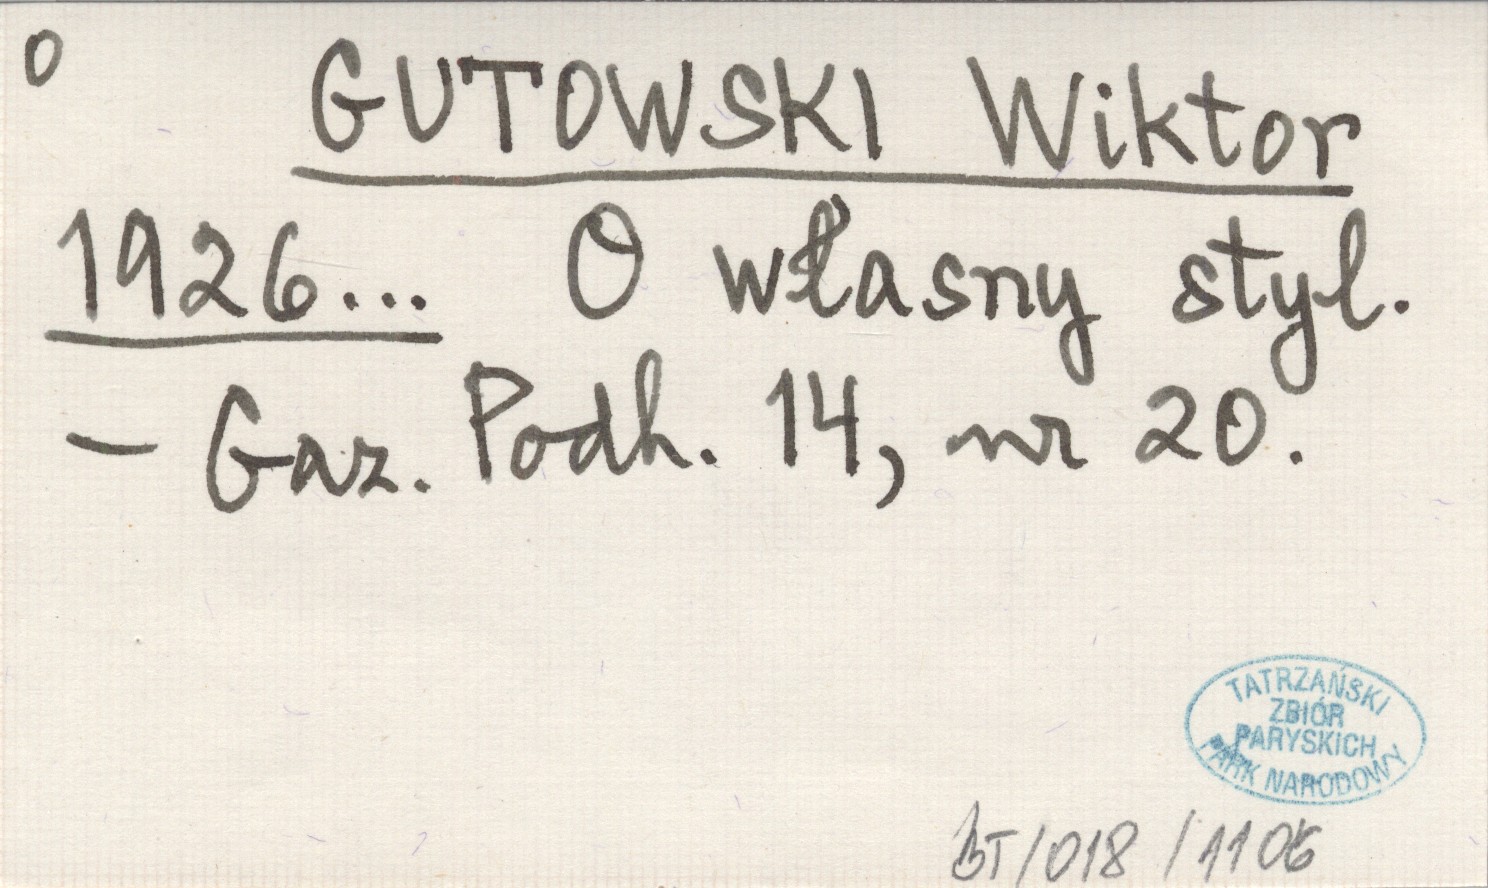 O
GUTOWSKI Wiktor
1926... O własny styl.
– Gaz. Podh. 14, nr 20.
TATRZAŃSKI
ZBIÓR
PARYSKICH
PARK NARODOWY
BT/018/1106